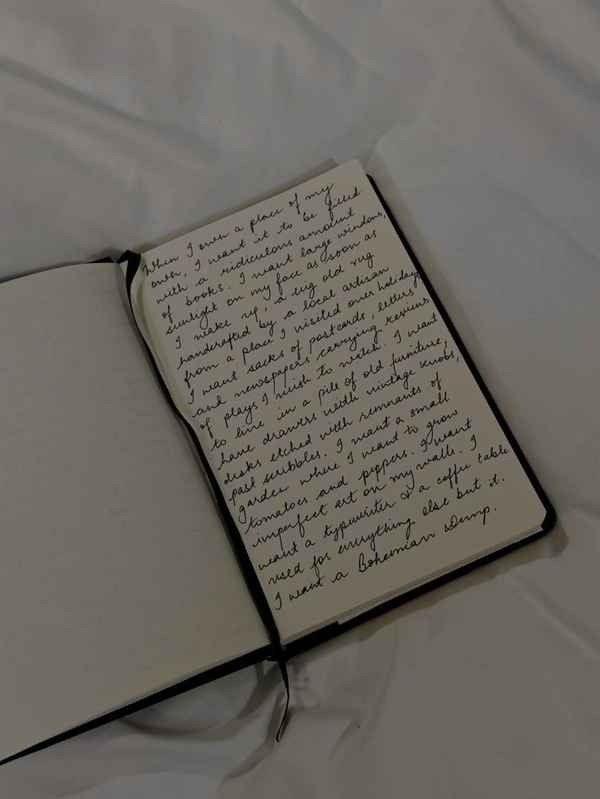 When I own a place of my
own, I want it to be filled
with a ridiculous amount
of books. I want large windows,
sunlight on my face as soon as
I wake up, a rug old rug
handcrafted by a local artisan
from a place I visited over holidays
I want sacks of postcards, letters
and newspapers carrying reviews
of plays I wish to watch. I want
to live in a pile of old furniture,
have drawers with vintage knobs,
desks etched with remnants of
past scribbles. I want a small
garden where I want to grow
tomatoes and peppers. I want
imperfect art on my walls. I
want a typewriter & a coffee table
used for everything else but it.
I want a Bohemian dump.